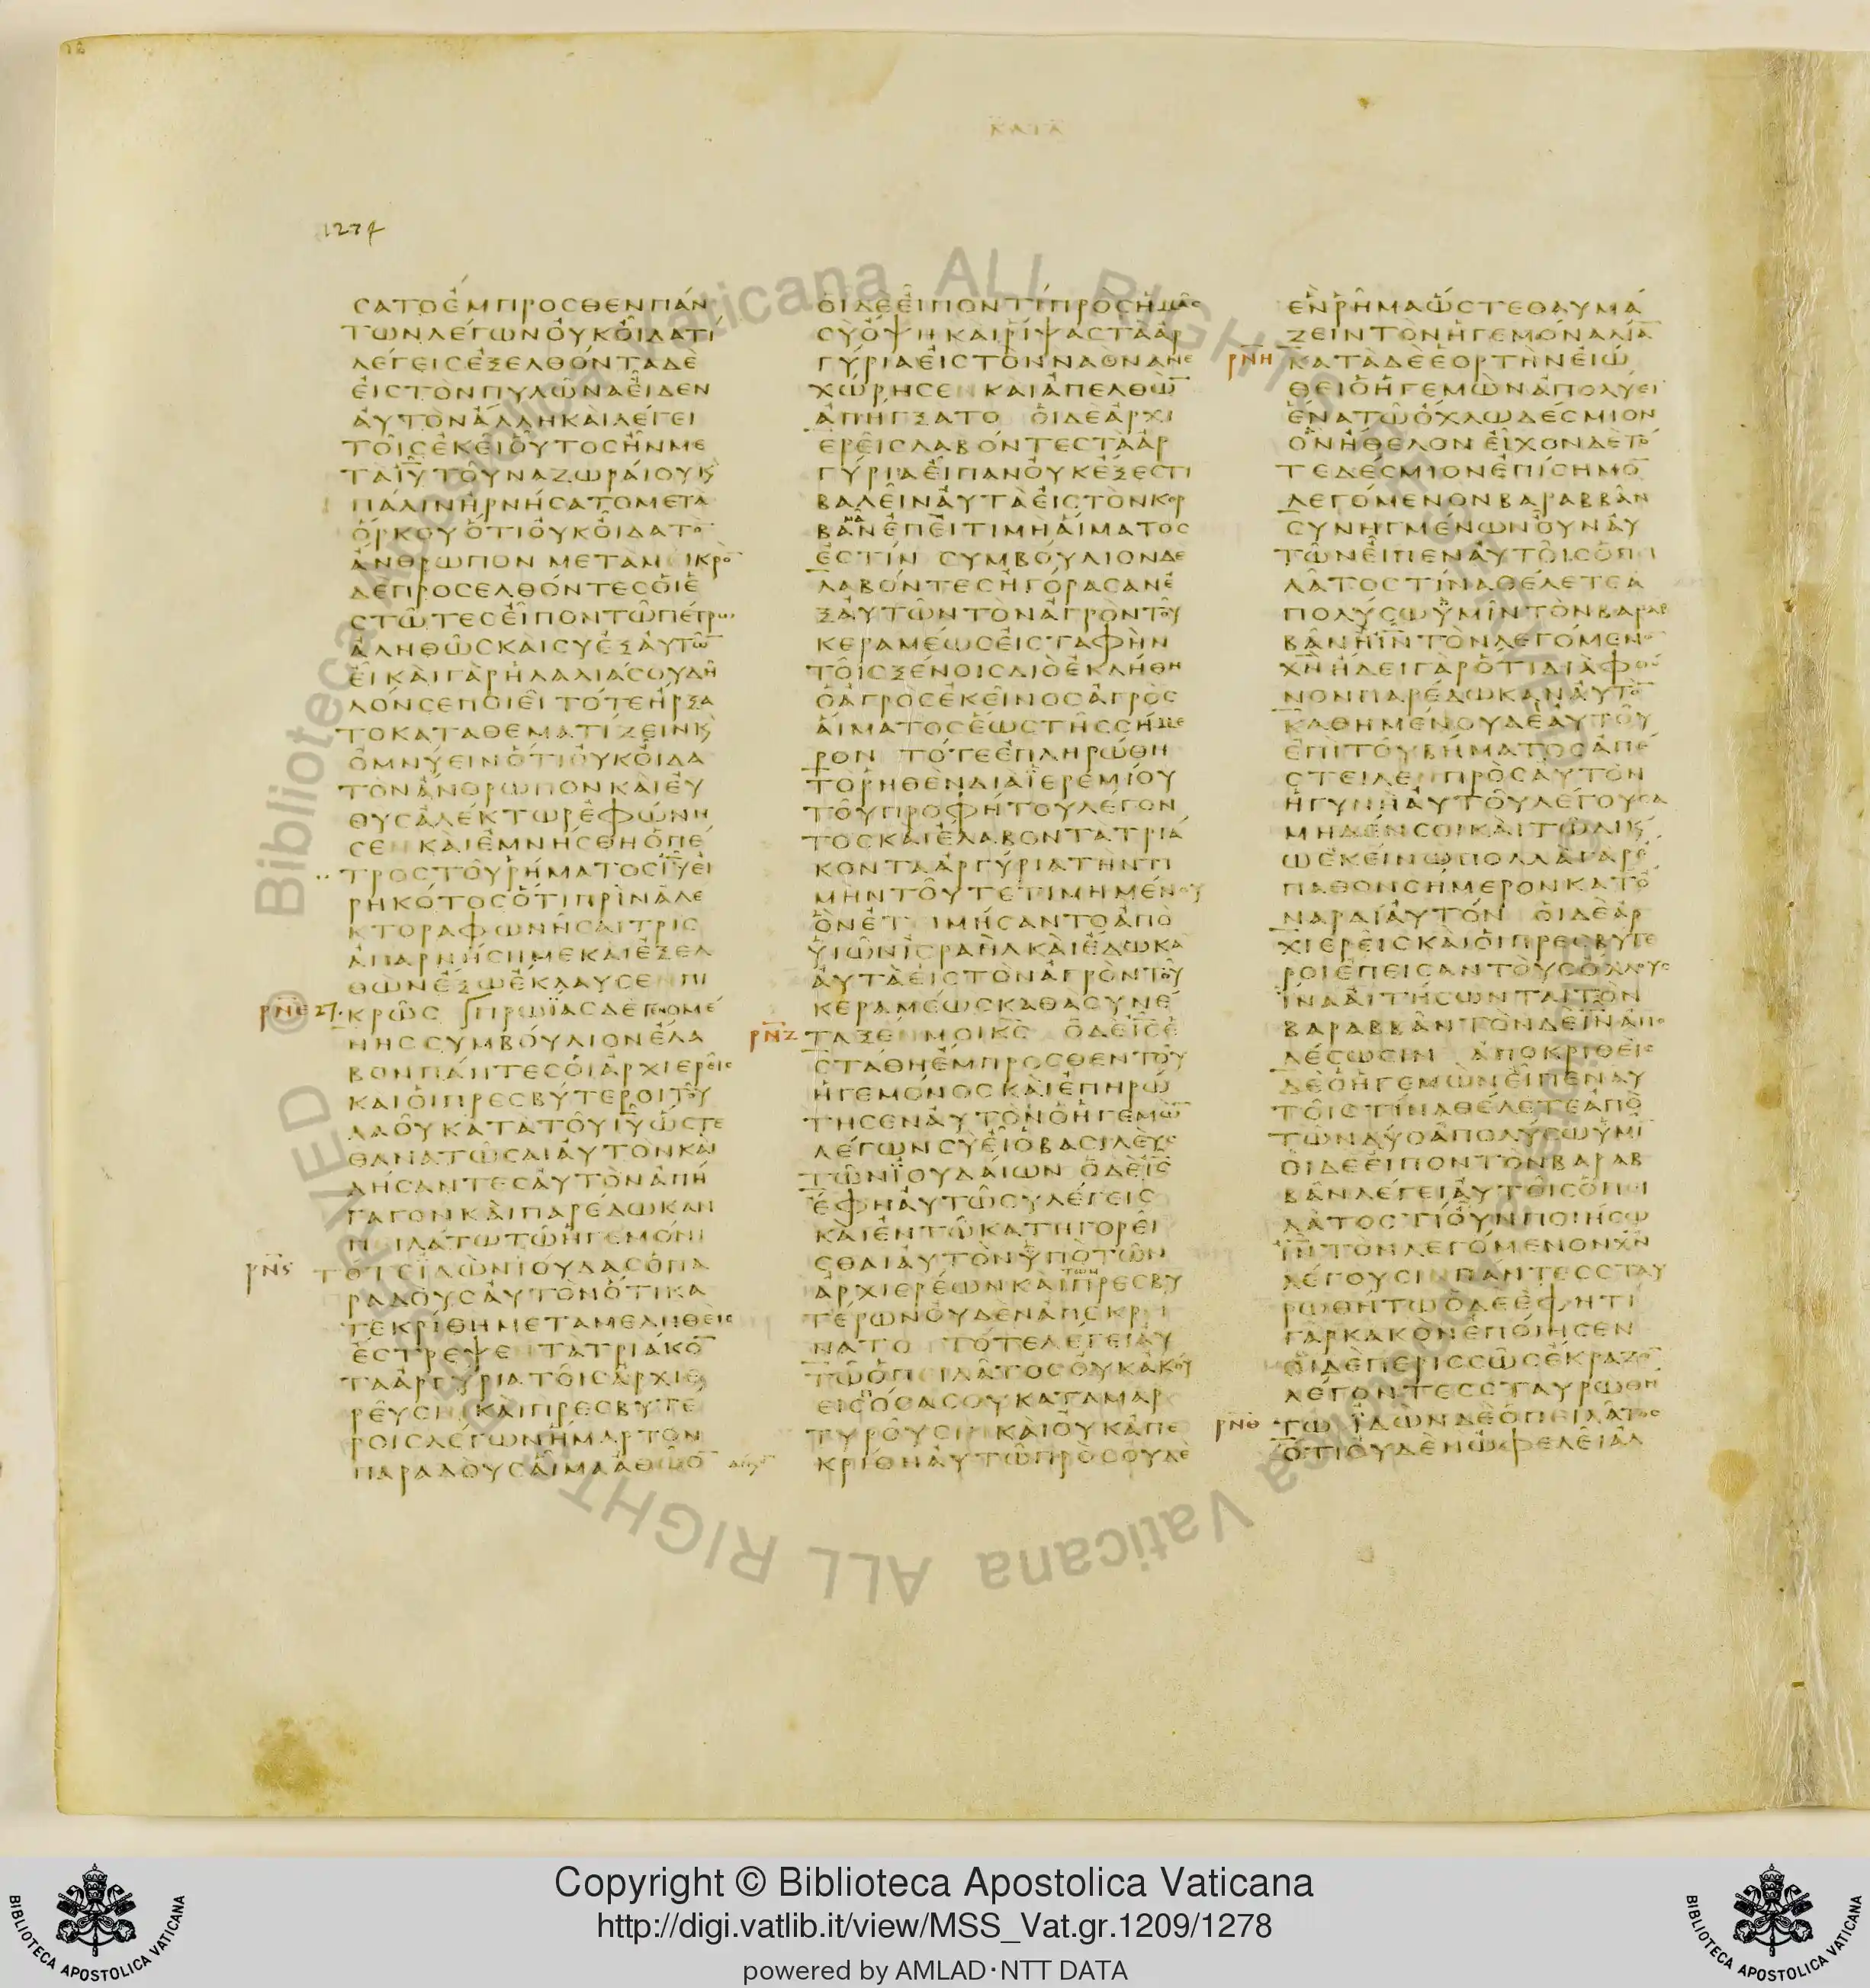 ΚΑΤΑ
1274
ϹΑΤΟΕΜΠΡΟϹΘΕΝΠΑΝ
ΤΩΝΛΕΓΩΝΟΥΚΟΙΔΑΤΙ
ΛΕΓΕΙϹΕΞΕΛΘΟΝΤΑΔΕ
ΕΙϹΤΟΝΠΥΛΩΝΑΕΙΔΕΝ
ΑΥΤΟΝΑΛΛΗΚΑΙΛΕΓΕΙ
ΤΟΙϹΕΚΕΙΟΥΤΟϹΗΝΜΕ
ΤΑΙΥΤΟΥΝΑΖΩΡΑΙΟΥΚ
ΠΑΛΙΝΗΡΝΗϹΑΤΟΜΕΤΑ
ΟΡΚΟΥΟΤΙΟΥΚΟΙΔΑΤΟ
ΑΝΘΡΩΠΟΝ ΜΕΤΑΜΕΙΚΡΟ
ΔΕΠΡΟϹΕΛΘΟΝΤΕϹΟΙΕ
ϹΤΩΤΕϹΕΙΠΟΝΤΩΠΕΤΡΩ
ΑΛΗΘΩϹΚΑΙϹΥΕΞΑΥΤΩ
ΕΙΚΑΙΓΑΡΗΛΑΛΙΑϹΟΥΔΗ
ΛΟΝϹΕΠΟΙΕΙ ΤΟΤΕΗΡΞΑ
ΤΟΚΑΤΑΘΕΜΑΤΙΖΕΙΝΚ
ΟΜΝΥΕΙΝΟΤΙΟΥΚΟΙΔΑ
ΤΟΝΑΝΘΡΩΠΟΝΚΑΙΕΥ
ΘΥϹΑΛΕΚΤΩΡΕΦΩΝΗ
ϹΕΝ ΚΑΙΕΜΝΗϹΘΗΟΠΕ
ΤΡΟϹΤΟΥΡΗΜΑΤΟϹΙΥΕΙ
ΡΗΚΟΤΟϹΟΤΙΠΡΙΝΑΛΕ
ΚΤΟΡΑΦΩΝΗϹΑΙΤΡΙϹ
ΑΠΑΡΝΗϹΗΜΕΚΑΙΕΞΕΛ
ΘΩΝΕΞΩΕΚΛΑΥϹΕΝΠΙ
ΡΝΕ 27. ΚΡΩϹ ΠΡΩΪΑϹΔΕΓΕΝΟΜΕ
ΝΗϹϹΥΜΒΟΥΛΙΟΝΕΛΑ
ΒΟΝΠΑΝΤΕϹΟΙΑΡΧΙΕΡΕΙϹ
ΚΑΙΟΙΠΡΕϹΒΥΤΕΡΟΙΤΟΥ
ΛΑΟΥΚΑΤΑΤΟΥΙΥΩϹΤΕ
ΘΑΝΑΤΩϹΑΙΑΥΤΟΝΚΑΙ
ΔΗϹΑΝΤΕϹΑΥΤΟΝΑΠΗ
ΓΑΓΟΝΚΑΙΠΑΡΕΔΩΚΑΝ
ΠΕΙΛΑΤΩΤΩΗΓΕΜΟΝΙ
ΡΝϚ ΤΟΤΕΪΔΩΝΙΟΥΔΑϹΟΠΑ
ΡΑΔΟΥϹΑΥΤΟΝΟΤΙΚΑ
ΤΕΚΡΙΘΗΜΕΤΑΜΕΛΗΘΕΙϹ
ΕϹΤΡΕΨΕΝΤΑΤΡΙΑΚΟ
ΤΑΑΡΓΥΡΙΑΤΟΙϹΑΡΧΙΕ
ΡΕΥϹΙΝΚΑΙΠΡΕϹΒΥΤΕ
ΡΟΙϹΛΕΓΩΝΗΜΑΡΤΟΝ
ΠΑΡΑΔΟΥϹΑΙΜΑΑΘΩΟ
ΟΙΔΕΕΙΠΟΝΤΙΠΡΟϹΗΜΑϹ
ϹΥΟΨΗΚΑΙΡΙΨΑϹΤΑΑΡ
ΓΥΡΙΑΕΙϹΤΟΝΝΑΟΝΑΝΕ
ΧΩΡΗϹΕΝ ΚΑΙΑΠΕΛΘΩ
ΑΠΗΓΞΑΤΟ ΟΙΔΕΑΡΧΙ
ΕΡΕΙϹΛΑΒΟΝΤΕϹΤΑΑΡ
ΓΥΡΙΑΕΙΠΑΝΟΥΚΕΞΕϹΤΙ
ΒΑΛΕΙΝΑΥΤΑΕΙϹΤΟΝΚΟΡ
ΒΑΝΕΠΕΙΤΙΜΗΑΙΜΑΤΟϹ
ΕϹΤΙΝ ϹΥΜΒΟΥΛΙΟΝΔΕ
ΛΑΒΟΝΤΕϹΗΓΟΡΑϹΑΝΕ
ΞΑΥΤΩΝΤΟΝΑΓΡΟΝΤΟΥ
ΚΕΡΑΜΕΩϹΕΙϹΤΑΦΗΝ
ΤΟΙϹΞΕΝΟΙϹΔΙΟΕΚΛΗΘΗ
ΟΑΓΡΟϹΕΚΕΙΝΟϹΑΓΡΟϹ
ΑΙΜΑΤΟϹΕΩϹΤΗϹϹΗΜΕ
ΡΟΝ ΤΟΤΕΕΠΛΗΡΩΘΗ
ΤΟΡΗΘΕΝΔΙΑΪΕΡΕΜΙΟΥ
ΤΟΥΠΡΟΦΗΤΟΥΛΕΓΟΝ
ΤΟϹΚΑΙΕΛΑΒΟΝΤΑΤΡΙΑ
ΚΟΝΤΑΑΡΓΥΡΙΑΤΗΝΤΙ
ΜΗΝΤΟΥΤΕΤΙΜΗΜΕΝΟΥ
ΟΝΕΤΙΜΗϹΑΝΤΟΑΠΟ
ΥΙΩΝΙϹΡΑΗΛΚΑΙΕΔΩΚΑ
ΑΥΤΑΕΙϹΤΟΝΑΓΡΟΝΤΟΥ
ΚΕΡΑΜΕΩϹΚΑΘΑϹΥΝΕ
ΡΝΖ ΤΑΞΕΝΜΟΙΚϹ ΟΔΕΙϹΕ
ϹΤΑΘΗΕΜΠΡΟϹΘΕΝΤΟΥ
ΗΓΕΜΟΝΟϹΚΑΙΕΠΗΡΩ
ΤΗϹΕΝΑΥΤΟΝΟΗΓΕΜΩ
ΛΕΓΩΝϹΥΕΙΟΒΑϹΙΛΕΥϹ
ΤΩΝΪΟΥΔΑΙΩΝ ΟΔΕΙϹ
ΕΦΗΑΥΤΩϹΥΛΕΓΕΙϹ
ΚΑΙΕΝΤΩΚΑΤΗΓΟΡΕΙ
ϹΘΑΙΑΥΤΟΝΥΠΟΤΩΝ
ΑΡΧΙΕΡΕΩΝΚΑΙΠΡΕϹΒΥ
ΤΕΡΩΝΟΥΔΕΝΑΠΕΚΡΕΙ
ΝΑΤΟ ΤΟΤΕΛΕΓΕΙΑΥ
ΤΩΟΠΕΙΛΑΤΟϹΟΥΚΑΚΟΥ
ΕΙϹΟϹΑϹΟΥΚΑΤΑΜΑΡ
ΤΥΡΟΥϹΙΝ ΚΑΙΟΥΚΑΠΕ
ΚΡΙΘΗΑΥΤΩΠΡΟϹΟΥΔΕ
ΕΝΡΗΜΑΩϹΤΕΘΑΥΜΑ
ΖΕΙΝΤΟΝΗΓΕΜΟΝΑΛΙΑ
ΡΝΗ ΚΑΤΑΔΕΕΟΡΤΗΝΕΙΩ
ΘΕΙΟΗΓΕΜΩΝΑΠΟΛΥΕΙ
ΕΝΑΤΩΟΧΛΩΔΕϹΜΙΟΝ
ΟΝΗΘΕΛΟΝ ΕΙΧΟΝΔΕΤΟ
ΤΕΔΕϹΜΙΟΝΕΠΙϹΗΜΟ
ΛΕΓΟΜΕΝΟΝΒΑΡΑΒΒΑΝ
ϹΥΝΗΓΜΕΝΩΝΟΥΝΑΥ
ΤΩΝΕΙΠΕΝΑΥΤΟΙϹΟΠΕΙ
ΛΑΤΟϹΤΙΝΑΘΕΛΕΤΕΑ
ΠΟΛΥϹΩΥΜΙΝΤΟΝΒΑΡΑΒ
ΒΑΝΗΙΝΤΟΝΛΕΓΟΜΕΝΟ
ΧΝΗΔΕΙΓΑΡΟΤΙΔΙΑΦΘΟ
ΝΟΝΠΑΡΕΔΩΚΑΝΑΥΤΟ
ΚΑΘΗΜΕΝΟΥΔΕΑΥΤΟΥ
ΕΠΙΤΟΥΒΗΜΑΤΟϹΑΠΕ
ϹΤΕΙΛΕΝΠΡΟϹΑΥΤΟΝ
ΗΓΥΝΗΑΥΤΟΥΛΕΓΟΥϹΑ
ΜΗΔΕΝϹΟΙΚΑΙΤΩΔΙΚΑΙ
ΩΕΚΕΙΝΩΠΟΛΛΑΓΑΡΕ
ΠΑΘΟΝϹΗΜΕΡΟΝΚΑΤΟ
ΝΑΡΔΙΑΥΤΟΝ ΟΙΔΕΑΡ
ΧΙΕΡΕΙϹΚΑΙΟΙΠΡΕϹΒΥΤΕ
ΡΟΙΕΠΕΙϹΑΝΤΟΥϹΟΧΛΟΥϹ
ΪΝΑΑΙΤΗϹΩΝΤΑΙΤΟΝ
ΒΑΡΑΒΒΑΝΤΟΝΔΕΙΝΑΠΟ
ΛΕϹΩϹΙΝ ΑΠΟΚΡΙΘΕΙϹ
ΔΕΟΗΓΕΜΩΝΕΙΠΕΝΑΥ
ΤΟΙϹΤΙΝΑΘΕΛΕΤΕΑΠΟ
ΤΩΝΔΥΟΑΠΟΛΥϹΩΥΜΙ
ΟΙΔΕΕΙΠΟΝΤΟΝΒΑΡΑΒ
ΒΑΝΛΕΓΕΙΑΥΤΟΙϹΟΠΕΙ
ΛΑΤΟϹΤΙΟΥΝΠΟΙΗϹΩ
ΙΝΤΟΝΛΕΓΟΜΕΝΟΝΧΝ
ΛΕΓΟΥϹΙΝΠΑΝΤΕϹϹΤΑΥ
ΡΩΘΗΤΩΟΔΕΕΦΗΤΙ
ΓΑΡΚΑΚΟΝΕΠΟΙΗϹΕΝ
ΟΙΔΕΠΕΡΙϹϹΩϹΕΚΡΑΖΟ
ΛΕΓΟΝΤΕϹϹΤΑΥΡΩΘΗ
ΡΝΘ ΤΩ ΪΔΩΝΔΕΟΠΕΙΛΑΤΟϹ
ΟΤΙΟΥΔΕΝΩΦΕΛΕΙΑΛ
Copyright © Biblioteca Apostolica Vaticana
http://digi.vatlib.it/view/MSS_Vat.gr.1209/1278
powered by AMLAD·NTT DATA
BIBLIOTECA APOSTOLICA VATICANA
BIBLIOTECA APOSTOLICA VATICANA